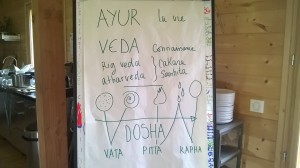 AYUR la vie
VEDA Connaissance
Rig veda } Cakara
atharveda } Samhita
DOSHA
VATA PITTA KAPHA